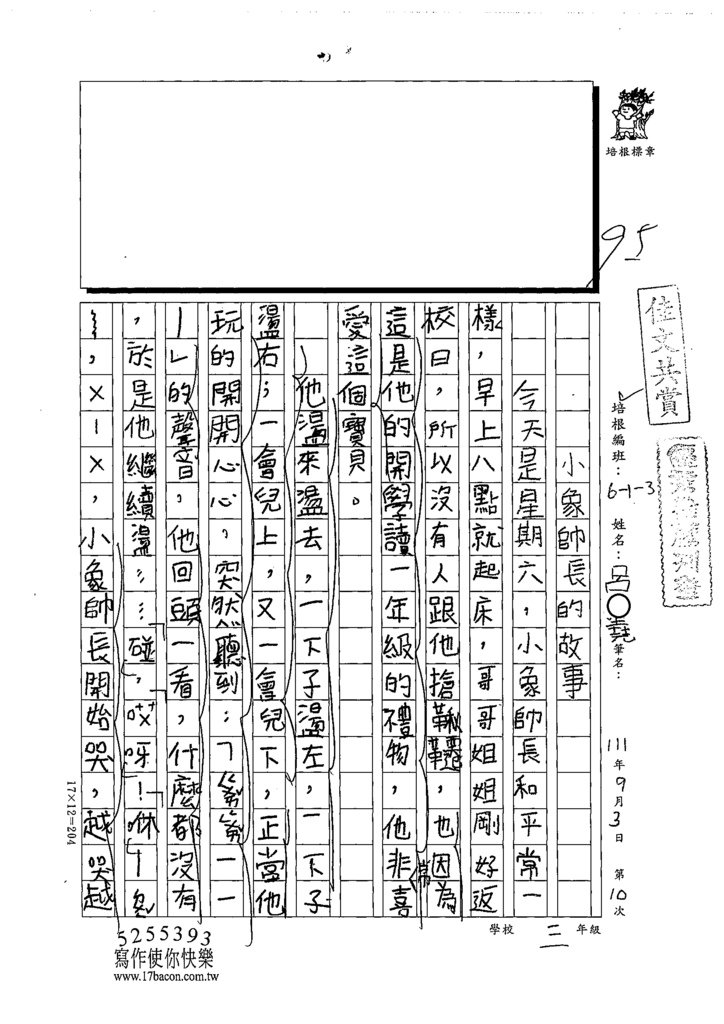 培根標章
95
佳文共賞
培根編班：6-1-3 姓名：呂〇堯 筆名：
111年9月3日 第10次
小象帥長的故事
今天是星期六，小象帥長和平常一
樣，早上八點就起床，哥哥姐姐剛好返
校日，所以沒有人跟他搶鞦韆，也因為
這是他的開學讀一年級的禮物，他非常喜
愛這個寶貝。
他盪來盪去，一下子盪左，一下子
盪右；一會兒上，又一會兒下，正當他
玩的開開心心，突然聽到：「
｜」的聲音，他回頭一看，什麼都沒有
，於是他繼續盪……碰，哎呀！咻
，ㄨㄧㄨ，小象帥長開始哭，越哭越
17×12=204
學校 三 年級
5255393
寫作使你快樂
www.17bacon.com.tw